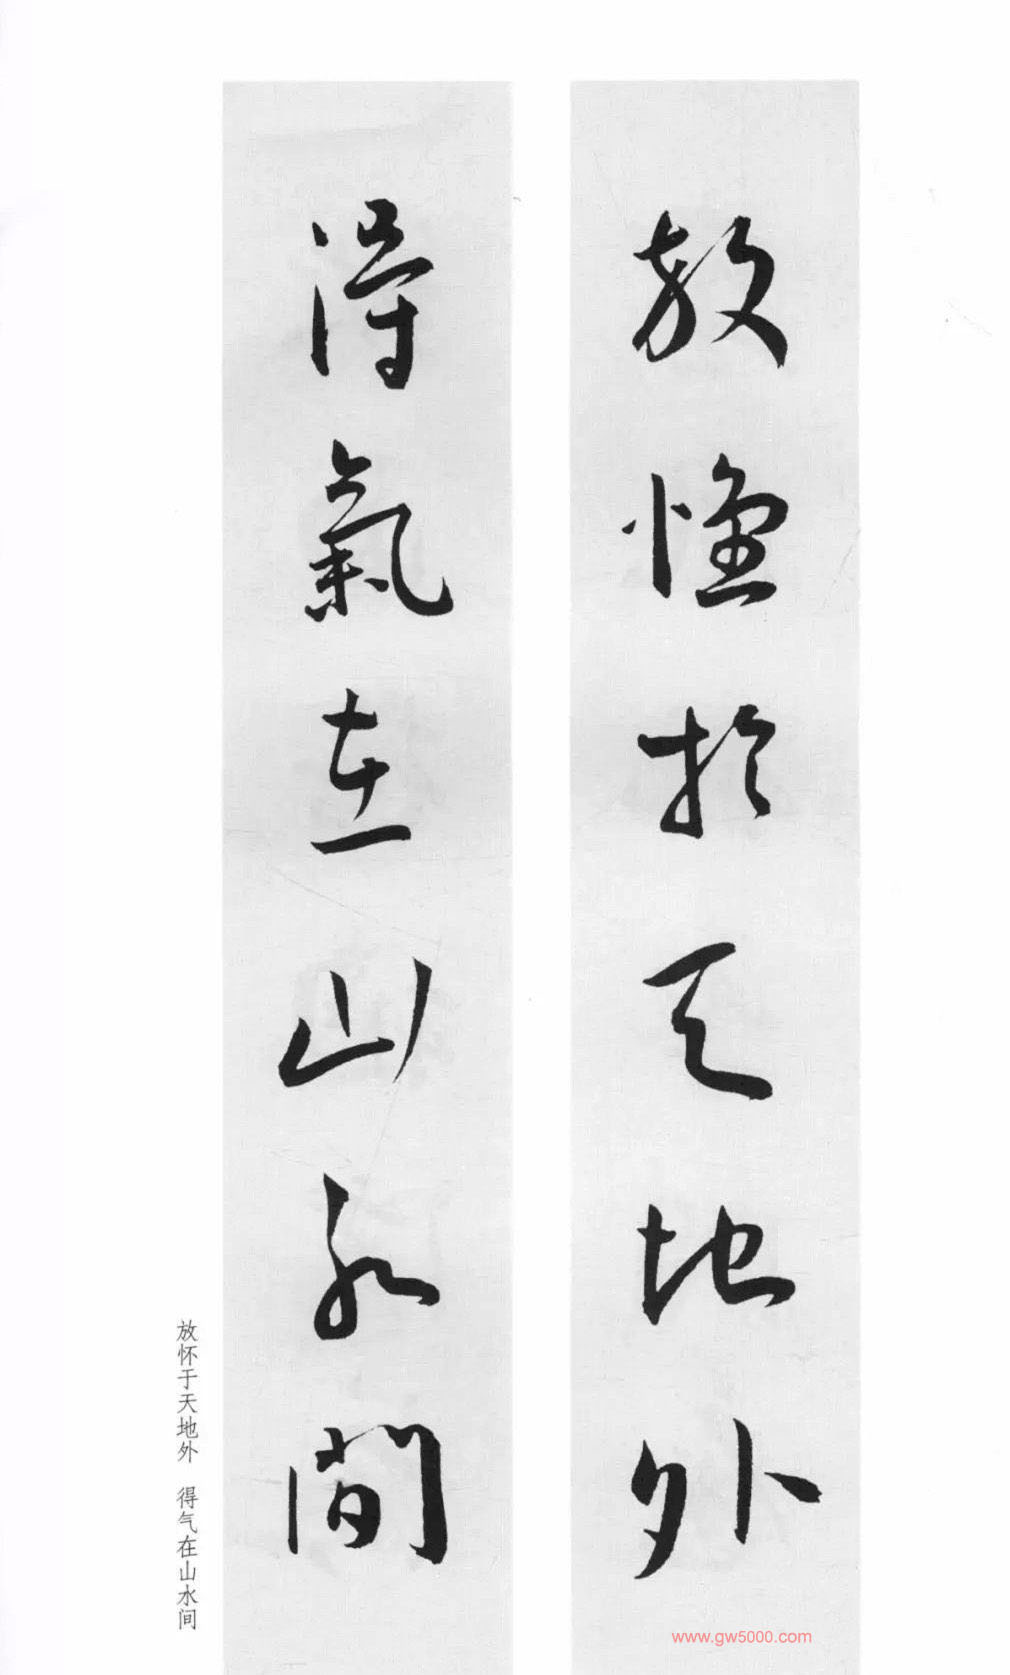 放懷於天地外
得氣在山水間
放怀于天地外　得气在山水间
www.gw5000.com